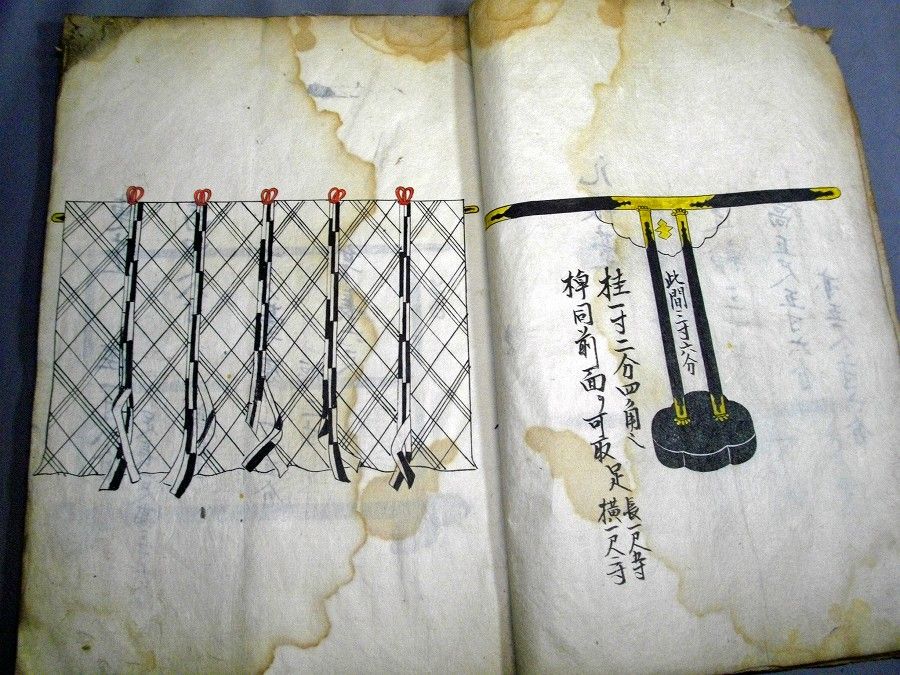 此間二寸六分
桂一寸二分四角ニ
椁同前面ヲ可取足
長一尺五寸
横一尺二寸